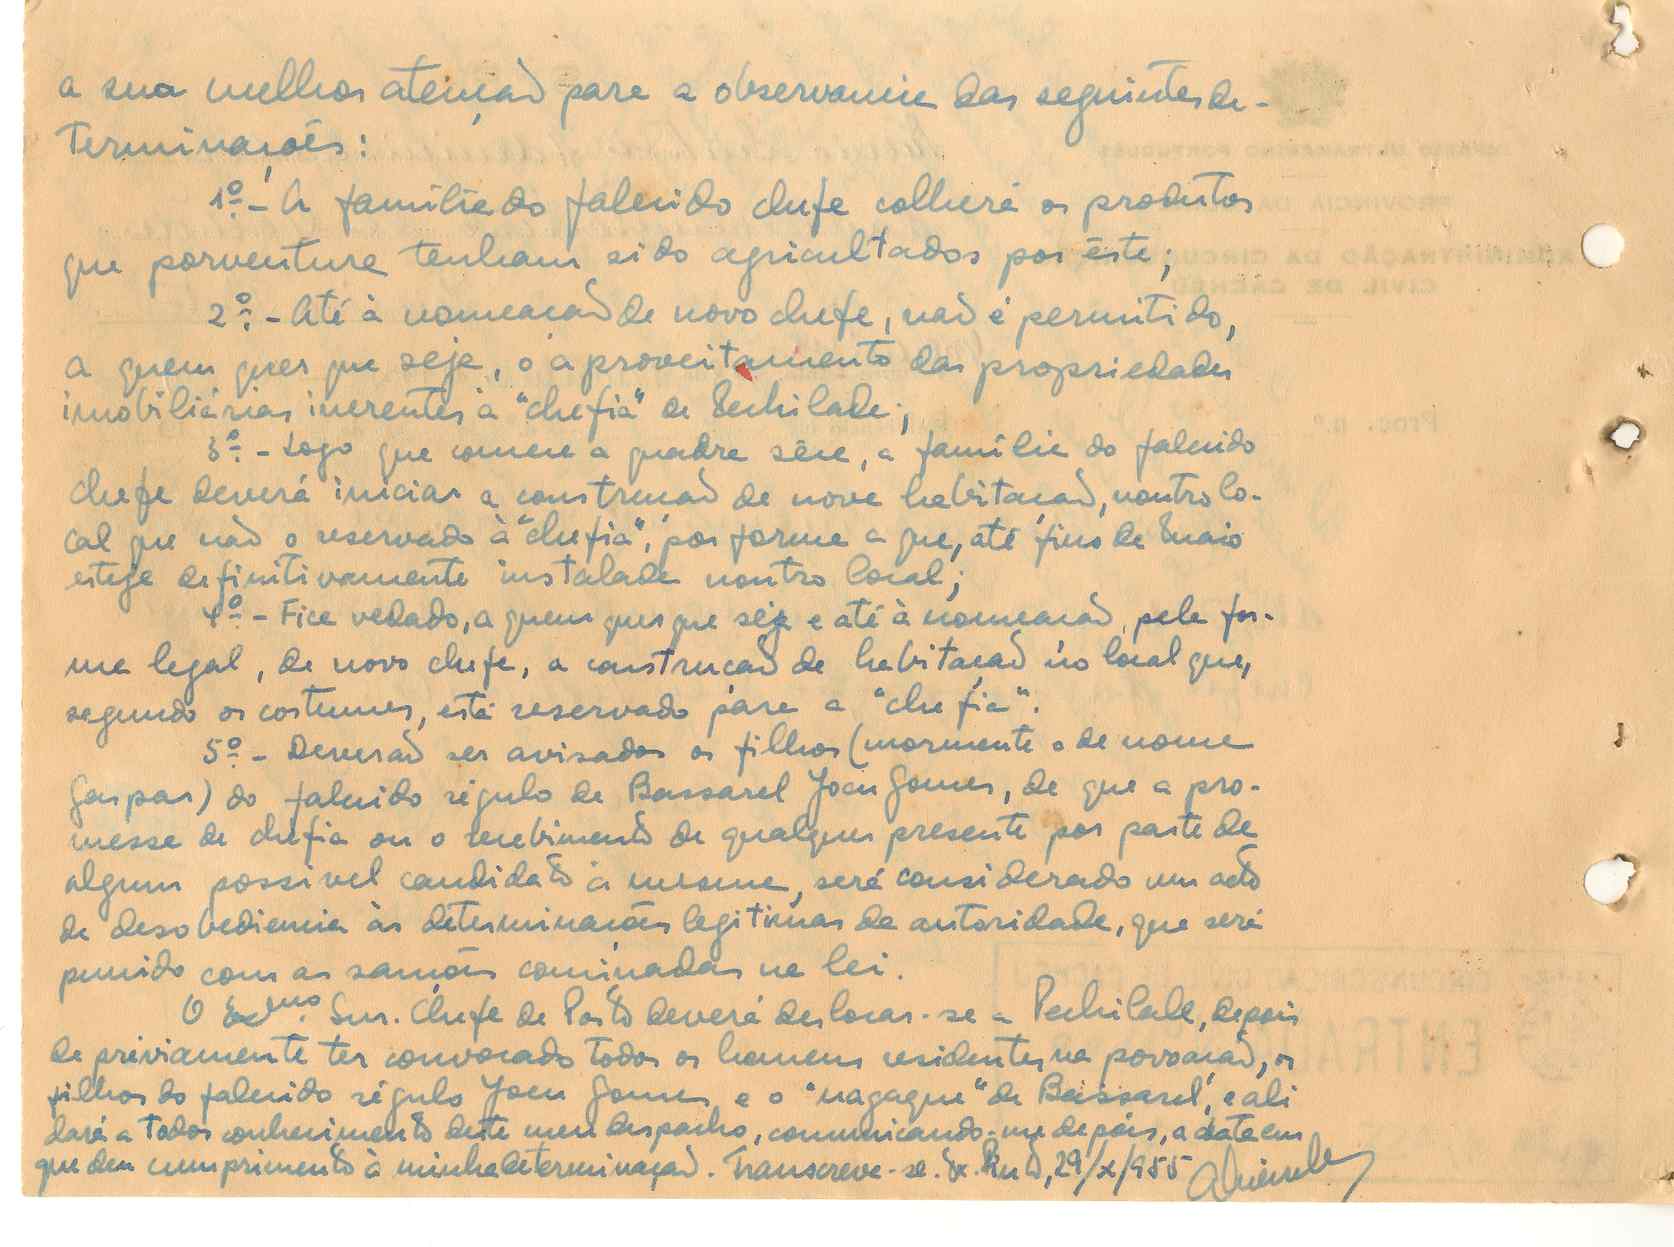 a sua melhor atenção para a observancia das seguintes de-
terminações:
1º- A família do falecido chefe colherá os produtos
que porventura tenham sido agricultados por êste;
2º- Até à nomeação de novo chefe, não é permitido,
a quem quer que seja, o aproveitamento das propriedades
imobiliárias inerentes à "chefia" de Pechilade;
3º- Logo que comece a quadra sêca, a família do falecido
chefe deverá iniciar a construção de nova habitação, noutro lo-
cal que não o reservado à "chefia", por forma a que, até fins de Maio
esteja definitivamente instalada noutro local;
4º- Fica vedado, a quem quer que seja e até à nomeação, pela for-
ma legal, de novo chefe, a construção de habitação no local que,
segundo os costumes, está reservado para a "chefia".
5º- Deverão ser avisados os filhos (mormente o de nome
Gaspar) do falecido régulo de Bassarel Joen Gomes, de que a pro-
messa de chefia ou o recebimento de qualquer presente por parte de
algum possivel candidato à mesma, será considerado um acto
de desobediencia às determinações legitimas da autoridade, que será
punido com as sanções cominadas na lei.
O Exmo. Snr. Chefe de Posto deverá deslocar-se a Pechilade, depois
de préviamente ter convocado todos os homens residentes na povoação, os
filhos do falecido régulo Joen Gomes e o "nagaque" de Bassarel, e ali
dará a todos conhecimento dêste meu despacho, comunicando-me depois, a data em
que deu cumprimento à minha determinação. Transcreva-se. 29/X/955
PROVINCIA DA
ADMINISTRAÇÃO DA CIRCUNSCRIÇÃO
CIVIL DE CACHEU
Proc. n.º
ENTRADA